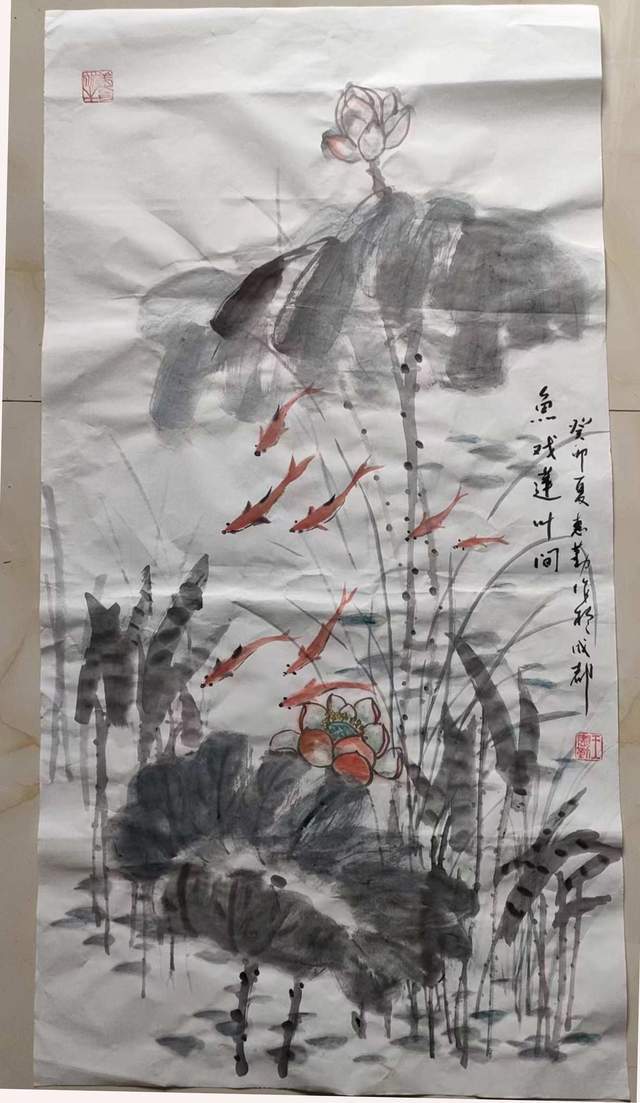 魚戏蓮叶间
癸卯夏惠勤作於成都